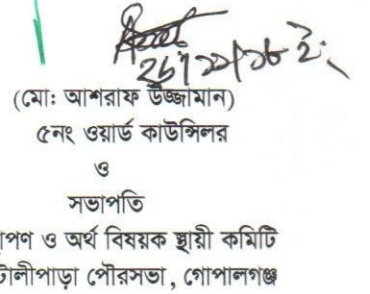 ২৮/১১/১৮ ইং
(মো: আশরাফ উজ্জামান)
৫নং ওয়ার্ড কাউন্সিলর
ও
সভাপতি
পণ ও অর্থ বিষয়ক স্থায়ী কমিটি
টালীপাড়া পৌরসভা, গোপালগঞ্জ